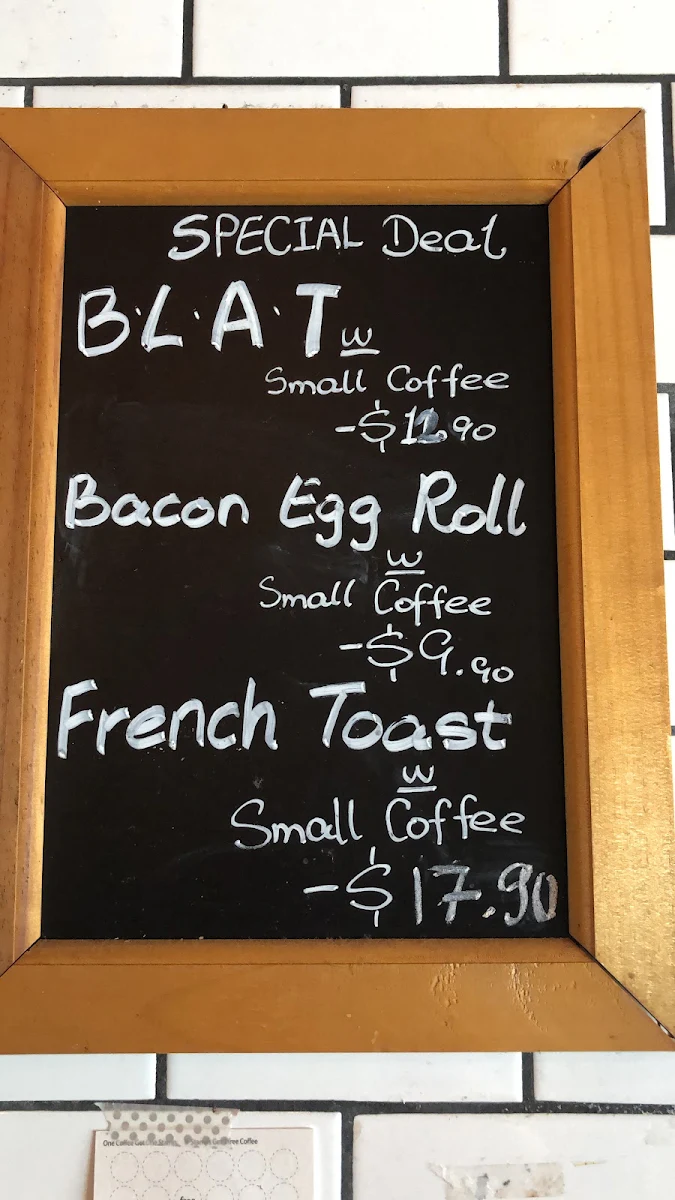 SPECIAL Deal
B.L.A.T w
Small Coffee
-$ 90
Bacon Egg Roll
w
Small Coffee
-$9.90
French Toast
w
Small Coffee
-$17.90
One Coffee Free Coffee
free